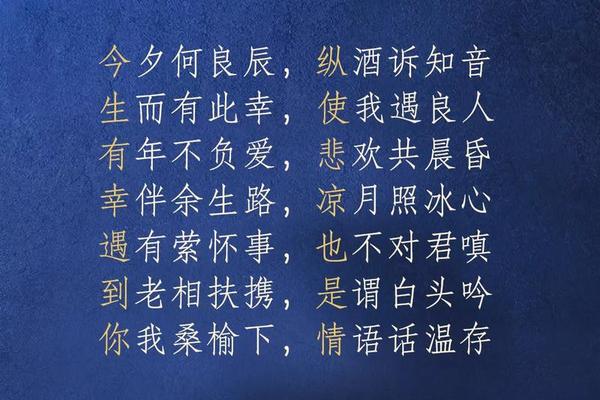 今夕何良辰，纵酒诉知音
生而有此幸，使我遇良人
有年不负爱，悲欢共晨昏
幸伴余生路，凉月照冰心
遇有萦怀事，也不对君嗔
到老相扶携，是谓白头吟
你我桑榆下，情语话温存